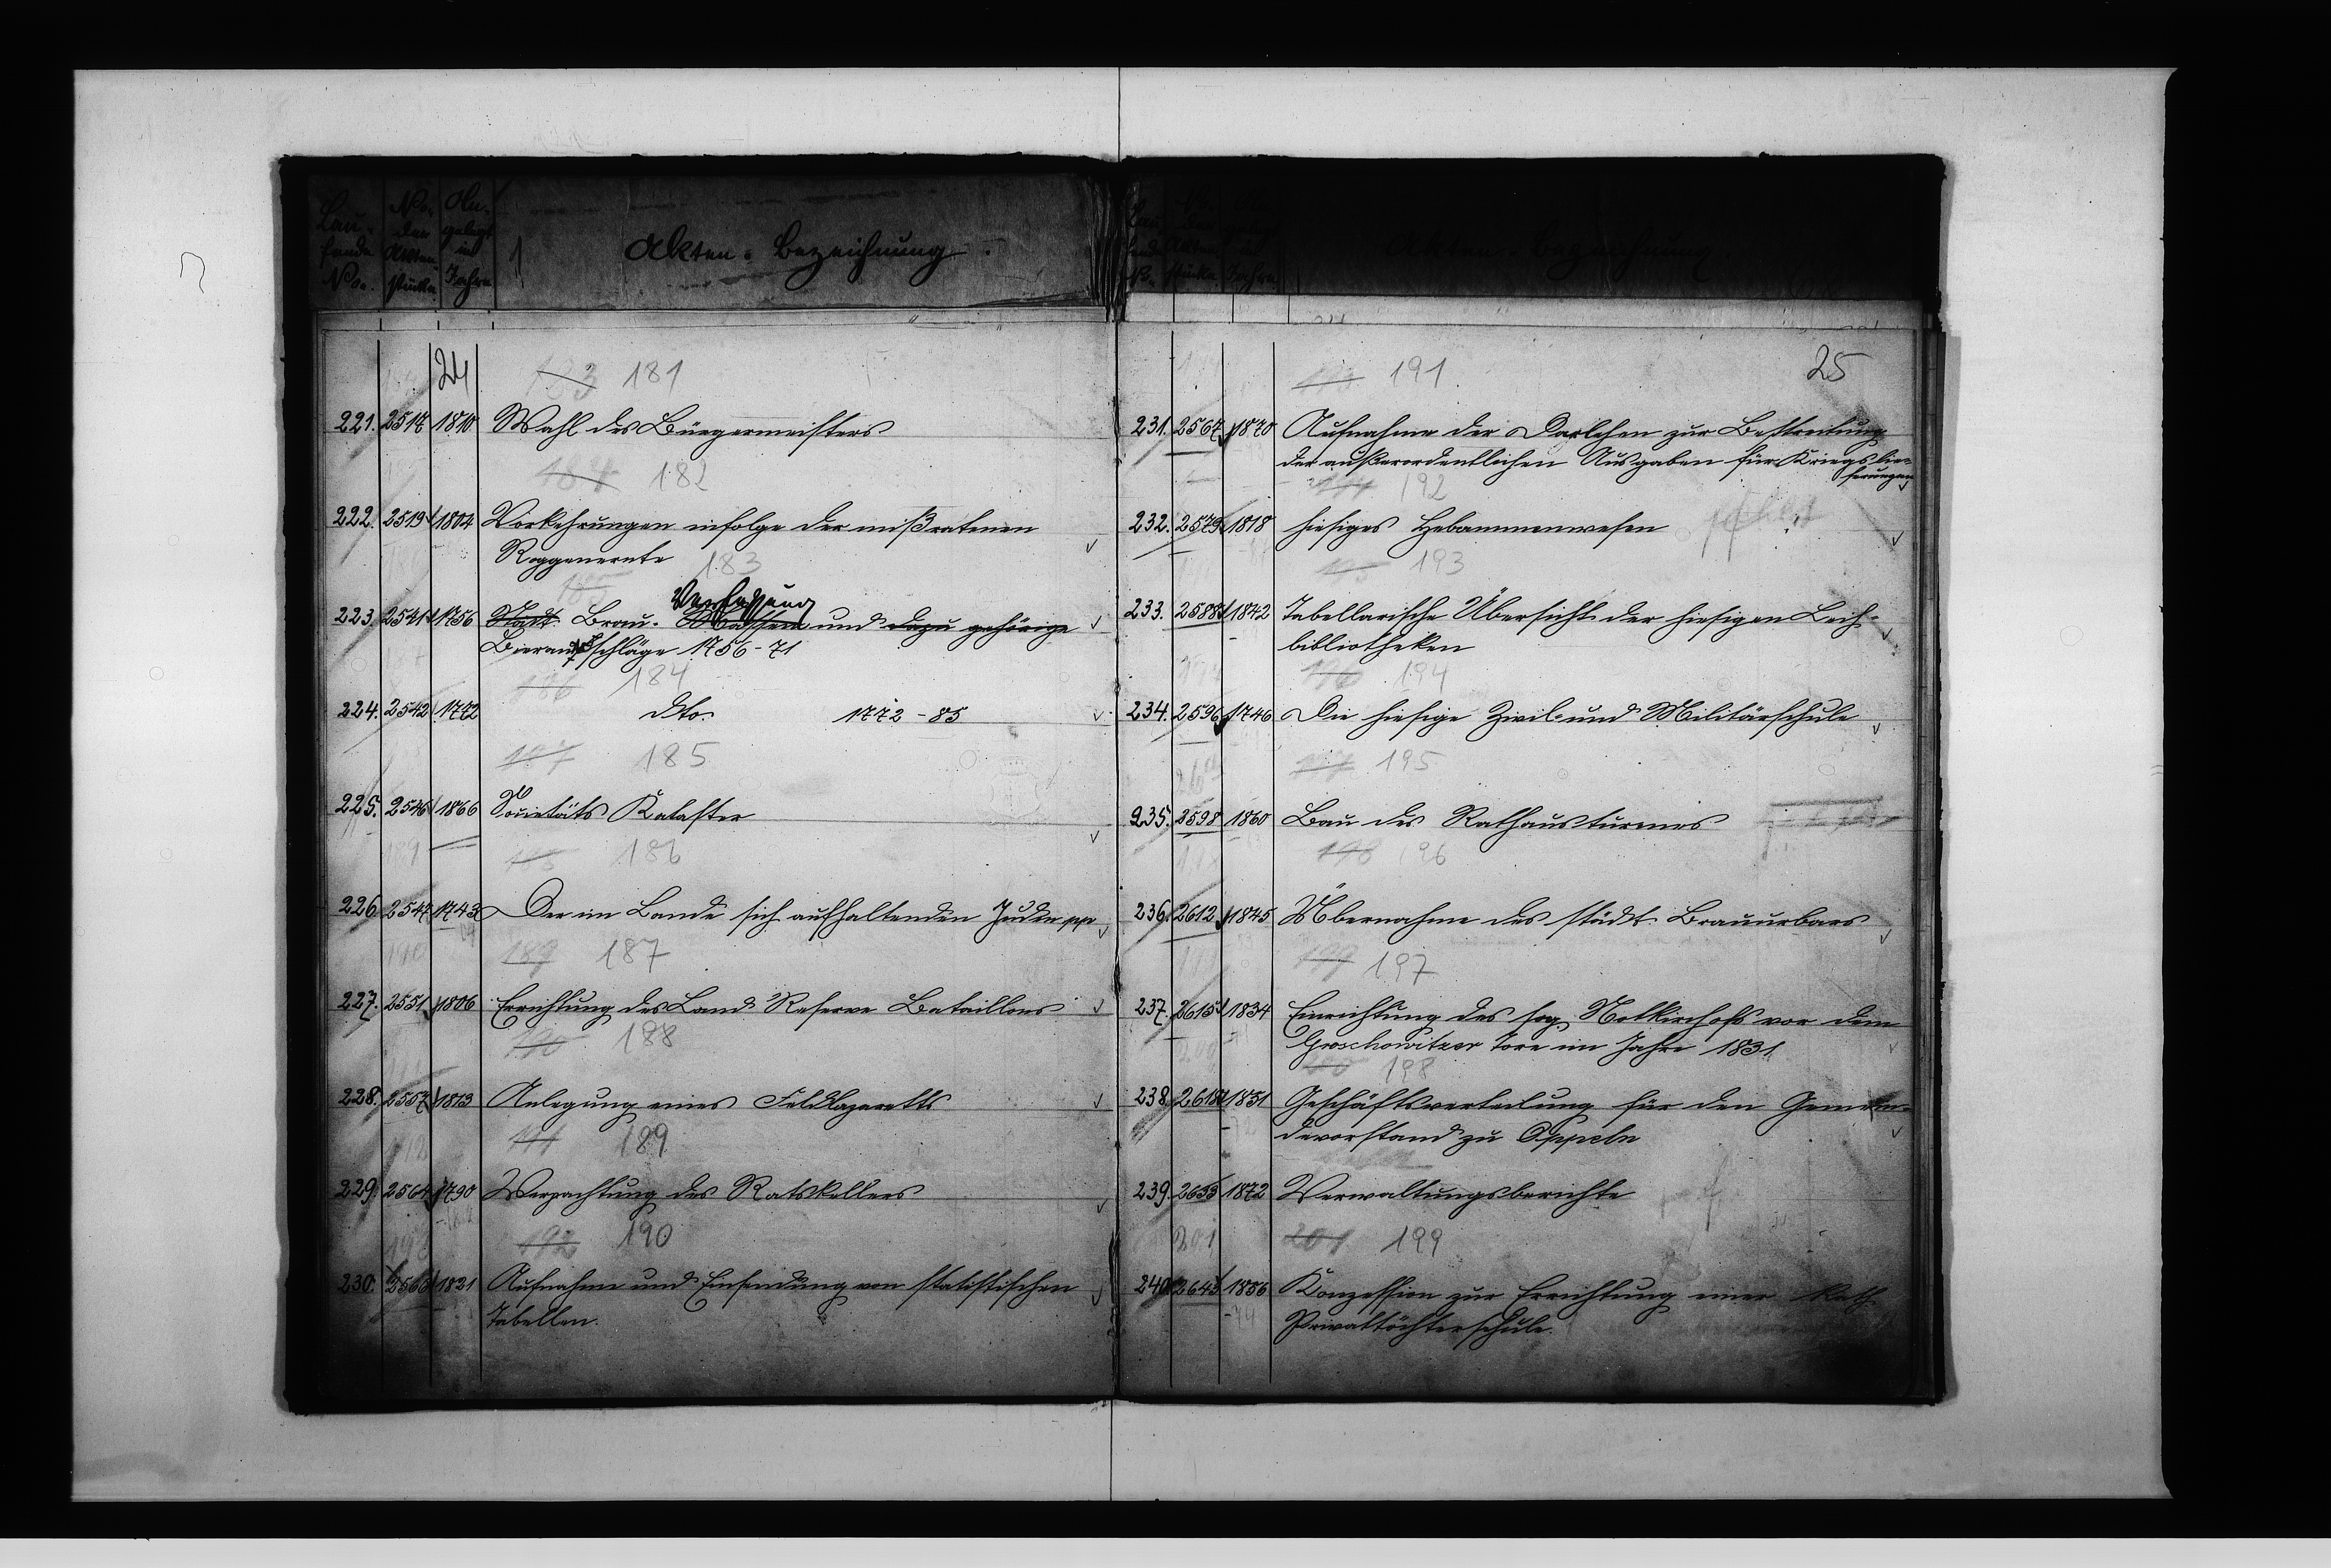 Lau-
fende
No.
No.
der
Akten-
stücke
An-
gelegt
im
Jahre
Akten-Bezeichnung.
24
183 181
221. 2517 1810 Wahl des Bürgermeisters
184 182
222. 2519 1804 Vorkehrungen infolge der mißratenen
Roggenernte 183
185
Verfassung
223. 2541 1756 Stadt. Brau- und dazu gehörige
Bieranschläge 1756-71
186 184
224. 2542 1772 dto. 1772-85
187 185
225. 2546 1866 Societäts Kataster
186
226. 2547 1743 Der im Lande sich aufhaltenden Juden ppp
189 187
227. 2551 1806 Errichtung des Land Reserve Bataillons
190 188
228. 2557 1813 Anlegung eines Feldlazaretts
191 189
229. 2564 1790 Verpachtung des Ratskellers
192 190
230. 2566 1821 Aufnahme und Einsendung von statistischen
Tabellen.
Akten-Bezeichnung.
25
191
231. 2567 1870 Aufnahme der Darlehen zur Bestreitung
der außerordentlichen Ausgaben für Kriegslie-
ferungen
192
232. 2579 1818 hiesiges Hebammenwesen fehlt
193
233. 2588 1842 Tabellarische Übersicht der hiesigen Leih-
bibliotheken
196 194
234. 2596 1746 Die hiesige Zivil- und Militärschule
197 195
235. 2598 1860 Bau des Rathausturmes
198 196
236. 2612 1845 Übernahme des städt. Brauurbars
199 197
237. 2615 1834 Einrichtung des sog. Notkirchhofs vor dem
Groschowitzer Tore im Jahre 1831
200 198
238. 2618 1851 Geschäftsverteilung für den Gemein-
devorstand zu Oppeln
239. 2633 1872 Verwaltungsberichte
201 199
240. 2643 1856 Konzession zur Errichtung einer kath.
-74 Privattöchterschule.